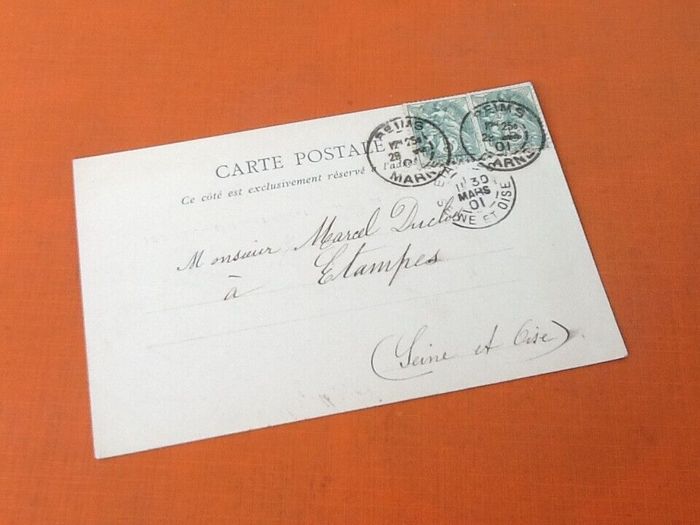 CARTE POSTALE
Ce côté est exclusivement réservé à l'adresse
REIMS
MARNE
REIMS
01
MARNE
30
MARS
01
SEINE ET OISE
Monsieur Marcel Duclos
à Etampes
(Seine et Oise)